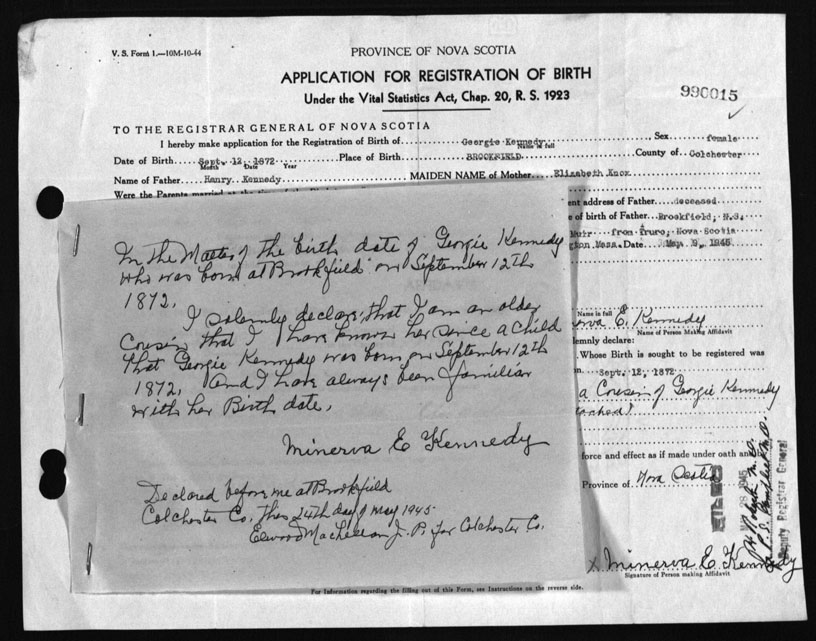 V. S. Form 1.—10M-10-44
PROVINCE OF NOVA SCOTIA
APPLICATION FOR REGISTRATION OF BIRTH
Under the Vital Statistics Act, Chap. 20, R. S. 1923
990015
TO THE REGISTRAR GENERAL OF NOVA SCOTIA
I hereby make application for the Registration of Birth of Georgie Kennedy Sex female
Name in full
Date of Birth Sept. 12, 1872 Place of Birth BROOKFIELD County of Colchester
Month Date Year
Name of Father Henry Kennedy MAIDEN NAME of Mother Elizabeth Knox
Were the Parents married at the time of the
ent address of Father deceased
e of birth of Father Brookfield, N.S.
Muir from Truro, Nova Scotia
gton Mass. Date May 9, 1945
In the Matter of the birth date of Georgie Kennedy
who was born at Brookfield on September 12th
1872.
I solemnly declare that I am an older
Cousin that I have known her since a child
that Georgie Kennedy was born on September 12th
1872. And I have always been familiar
with her Birth date.
Minerva E Kennedy
Declared before me at Brookfield
Colchester Co. This 24th day of May 1945
Elwood MacLellan J. P. for Colchester Co.
Name in full
erva E. Kennedy
Name of Person Making Affidavit
lemnly declare:
Whose Birth is sought to be registered was
on Sept. 12, 1872
a Cousin of Georgie Kennedy
tached)
force and effect as if made under oath and by
Province of Nova Scotia
Deputy Registrar General
x Minerva E Kennedy
Signature of Person making Affidavit
For Information regarding the filling out of this Form, see Instructions on the reverse side.